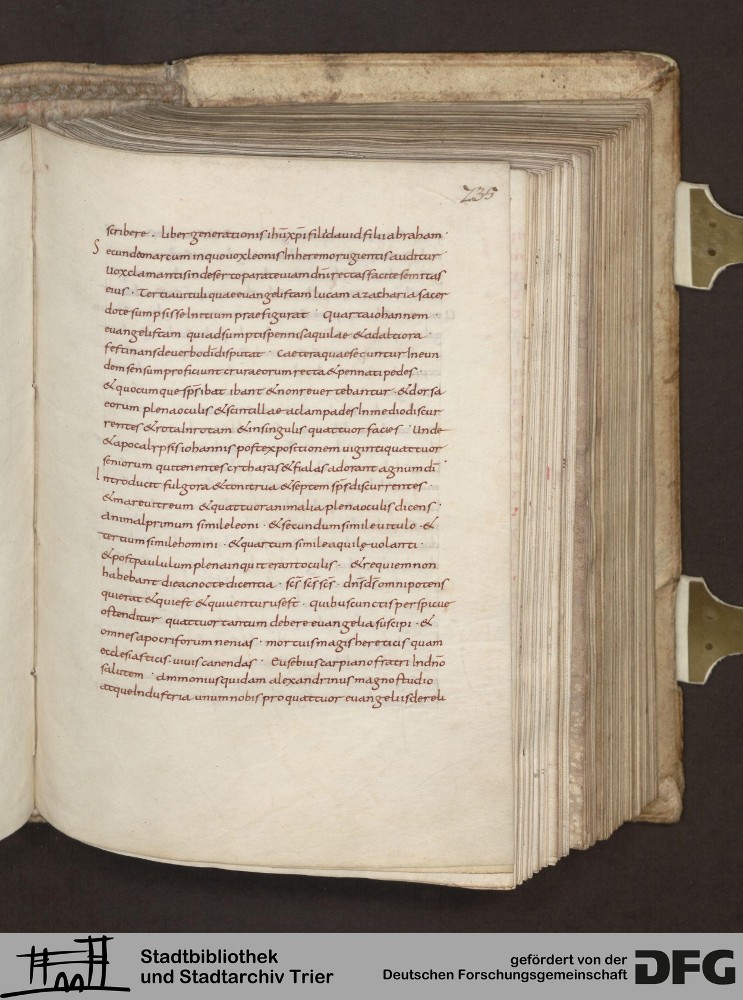 235
scribere . liber generationis ihu xpi filii dauid filii abraham ·
Secundo marcum in quo uox leonis In heremo rugientis auditur
uox clamantis in deserto parate uiam dni rectas facite semitas
eius · Tertia uituli quae euangelistam lucam a zacharia sacer
dote sumpsisse Initium praefigurat · quarta iohannem
euangelistam qui adsumptis pennis aquilae & ad altiora
festinans de uerbo di disputat · Caetera quae secuntur In eun
dem sensum proficiunt crura eorum recta & pennati pedes ·
& quocumque sps ibat ibant & non reuertebantur · & dorsa
eorum plena oculis & scintillae ac lampades In medio discur
rentes & rota In rotam & in singulis quattuor facies · Unde
& apocalypsis iohannis post expositionem uiginti quattuor
seniorum qui tenentes cytharas & fialas adorant agnum di
Introducit fulgora & tonitrua & septem sps discurrentes ·
& mare uitreum & quattuor animalia plena oculis dicens ·
animal primum simile leoni · & secundum simile uitulo · &
tertium simile homini · & quartum simile aquilę uolanti ·
& post paululum plena inquit erant oculis · & requiem non
habebant die ac nocte dicentia · scs scs scs · dns ds omnipotens
qui erat & qui est & qui uenturus est · quibus cunctis perspicue
ostenditur quattuor tantum debere euangelia suscipi · &
omnes apocriforum nenias · mortuis magis hereticis quam
ecclesiasticis · uiuis canendas · Eusebius carpiano fratri In dno
salutem · ammonius quidam alexandrinus magno studio
atque Industria unum nobis pro quattuor euangeliis dereli
Stadtbibliothek
und Stadtarchiv Trier
gefördert von der
Deutschen Forschungsgemeinschaft
DFG